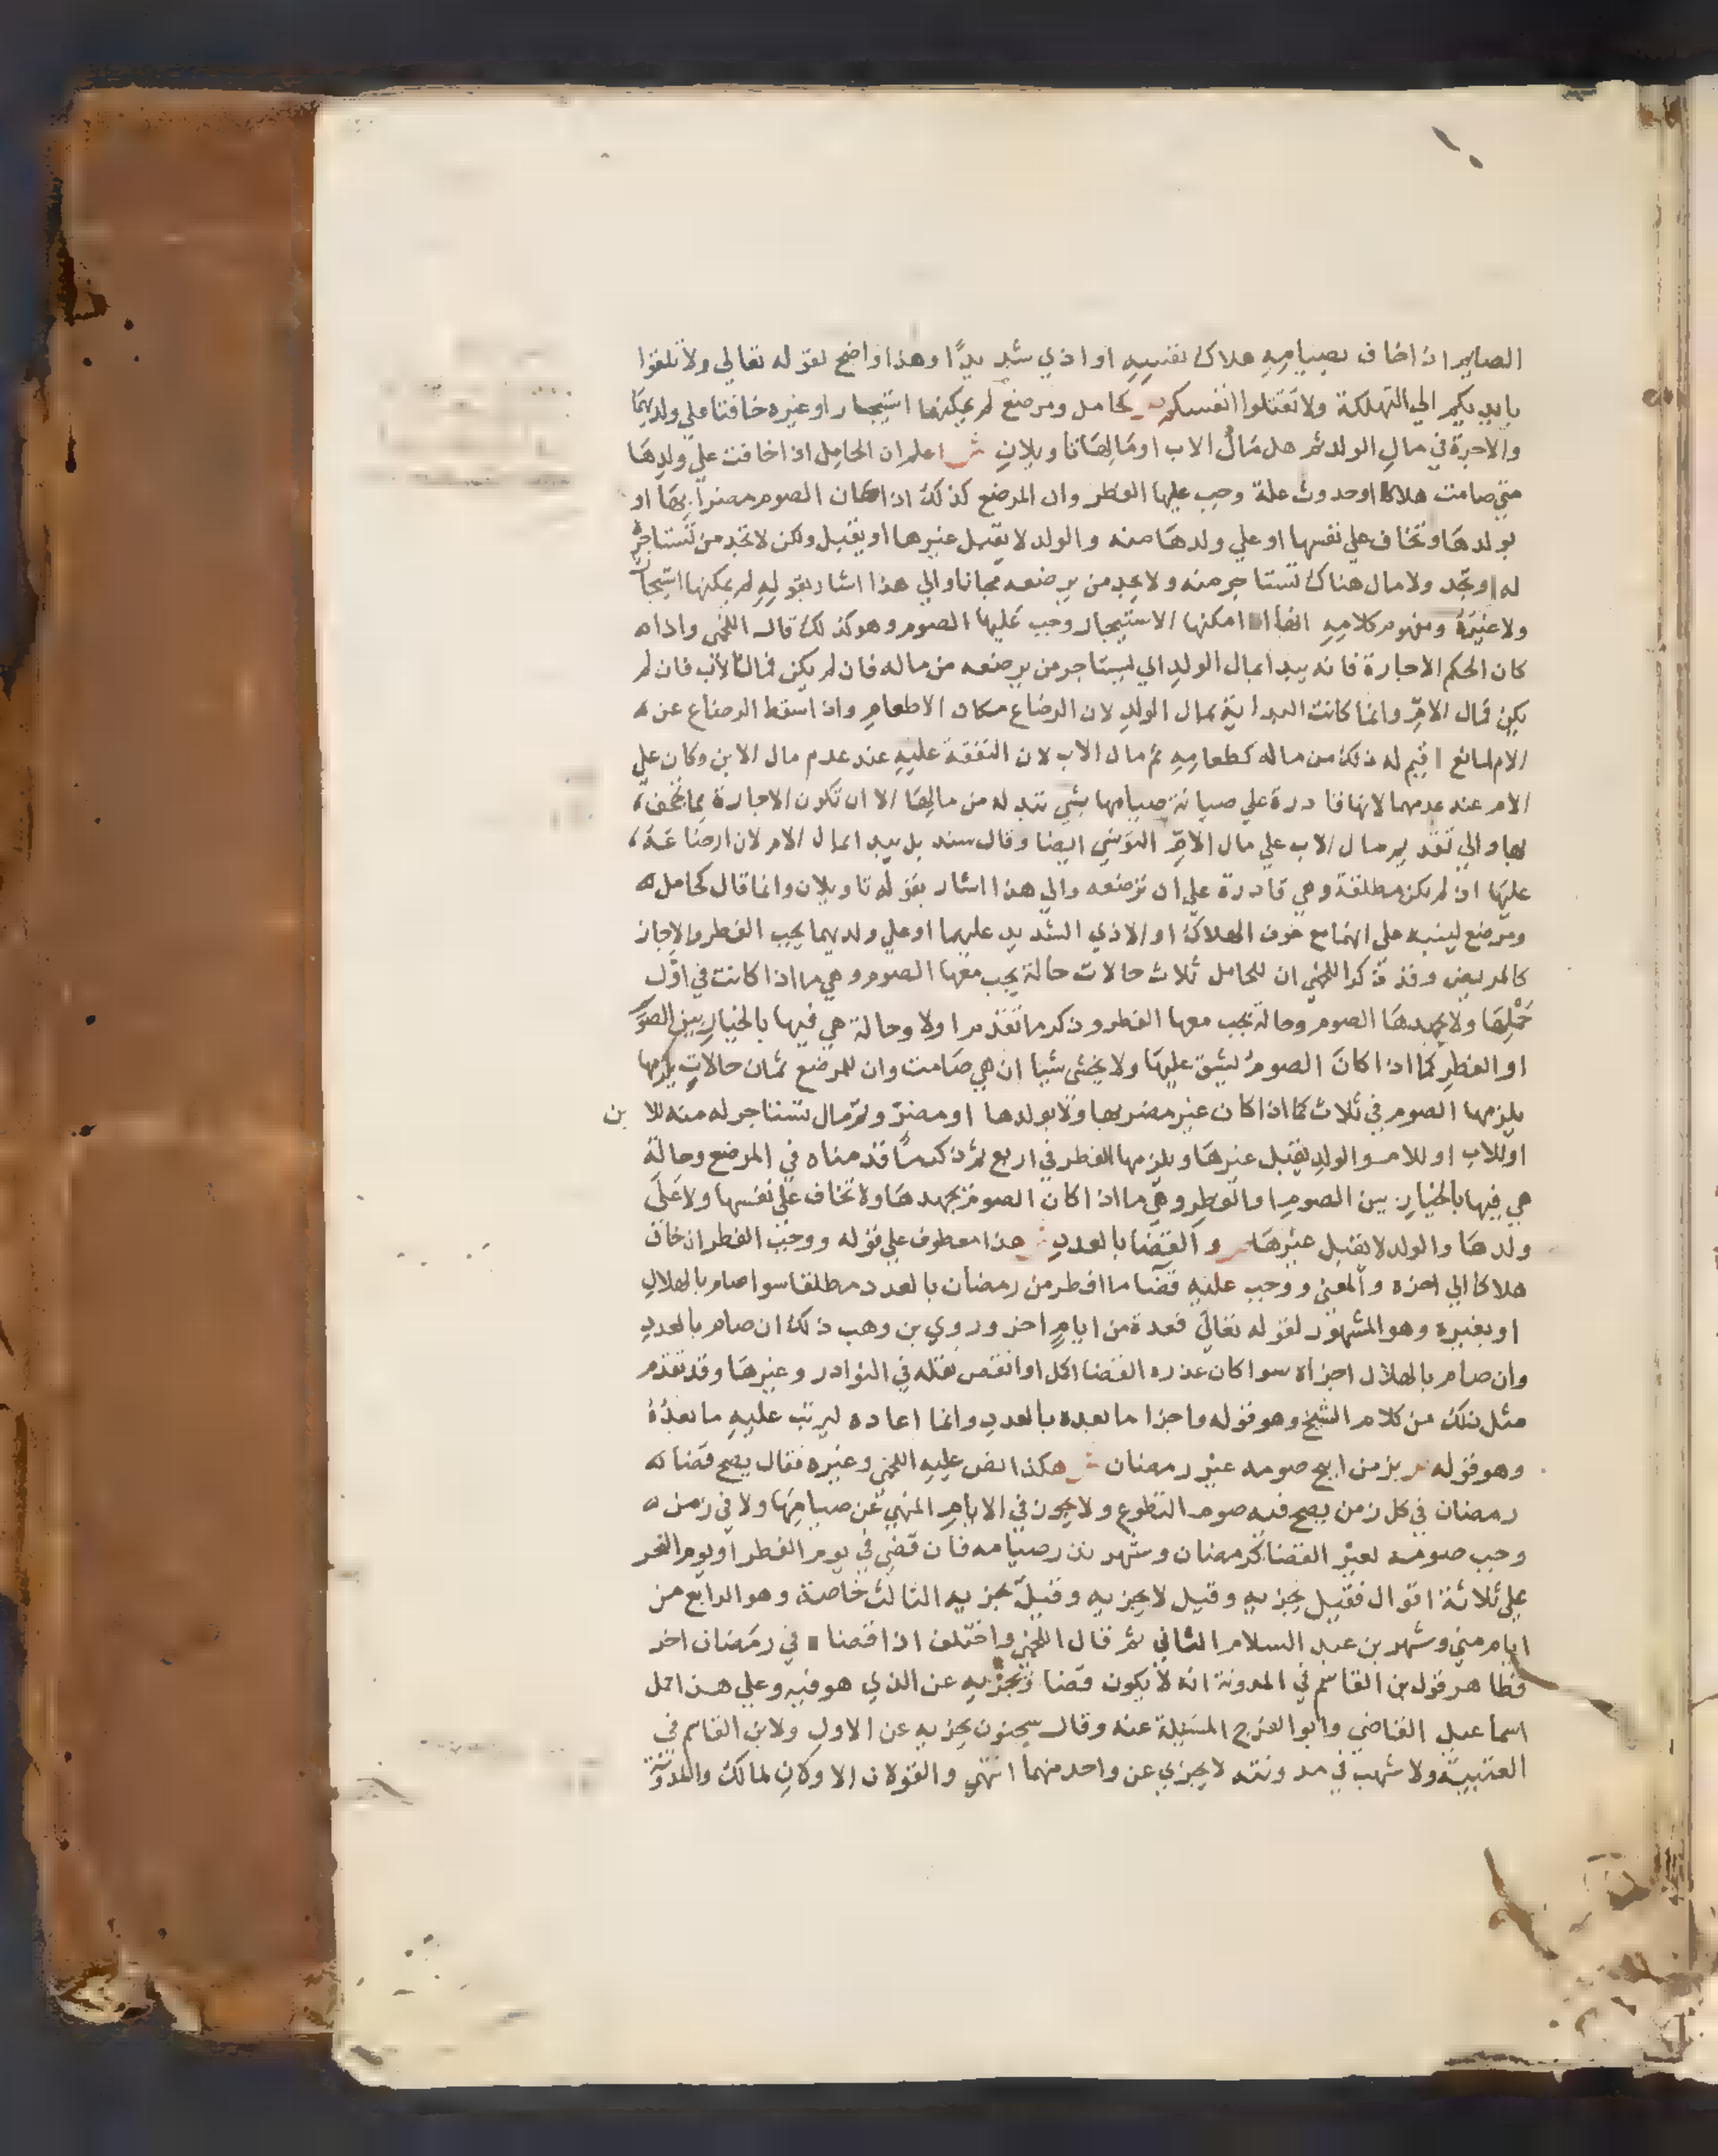 الصايم اذا خاف بصيامه هلاك نفسه او اذي شديدًا وهذا واضح لقوله تعالي ولا تلقوا
بايديكم الي التهلكة ولا تقتلوا انفسكم ص كحامل ومرضع لم يمكنها استيجار او غيره خافتا علي ولديهما
والاجرة في مال الولد ثم هل مال الاب او مالها تاويلان ش اعلم ان الحامل اذا خافت علي ولدها
متي صامت هلاكا او حدوث علة وجب عليها الفطر وان المرضع كذلك اذا كان الصوم مضرا بها او
بولدها وتخاف علي نفسها او علي ولدها منه والولد لا يقبل غيرها او يقبل ولكن لا تجد من تستاجره
له او تجد ولا مال هناك تستاجر منه ولا يجد من يرضعه مجانا والي هذا اشار بقوله لم يمكنها استيجار
ولا غيره ومفهوم كلامه انها ان امكنها الاستيجار وجب عليها الصوم وهو كذلك قال اللخمي واذا
كان الحكم الاجارة فانه يبدا بمال الولد اي ليستاجر من يرضعه من ماله فان لم يكن فمال الاب فان لم
يكن فمال الام وانما كانت البداية بمال الولد لان الرضاع مكان الاطعام واذا سقط الرضاع عن
الام لمانع اقيم له ذلك من ماله كطعامه ثم مال الاب لان النفقة عليه عند عدم مال الابن وكان علي
الام عند عدمهما لانها قادرة علي صيانة صيامها بشي تبذله من مالها الا ان تكون الاجارة مما تجحف
بها والي تقديم مال الاب علي مال الام التونسي ايضا وقال سند بل يبدا بمال الام لان ارضاعه
عليها اذ لم تكن مطلقة وهي قادرة علي ان ترضعه والي هذا اشار بقوله تاويلان وانما قال كحامل
ومرضع لينبه علي انهما مع خوف الهلاك او الاذي الشديد عليهما او علي ولديهما يجب الفطر والاجاز
كالمريض وقد ذكر اللخمي ان للحامل ثلاث حالات حالة يجب معها الصوم وهي ما اذا كانت في اول
حملها ولا يجهدها الصوم وحالة يجب معها الفطر وذكر ما تقدم اولا وحالة هي فيها بالخيار بين الصوم
او الفطر كما اذا كان الصوم ليشق عليها ولا يخشي شيا ان هي صامت وان للمرضع ثمان حالات يلزمها
يلزمها الصوم في ثلاث كما اذا كان غير مضر بها ولا بولدها او مضر وثم مال تستاجر له منه للابن
او للاب او للام والولد يقبل غيرها ويلزمها الفطر في اربع ثم ذكر ما قدمناه في المرضع وحالة
هي فيها بالخيار بين الصوم او الفطر وهي ما اذا كان الصوم يجهدها ولا تخاف علي نفسها ولا علي
ولدها والولد لا يقبل غيرها ص والقضا بالعدد ش هذا معطوف علي قوله ووجب الفطر ان خاف
هلاكا الي اخره والمعني ووجب عليه قضا ما افطر من رمضان بالعدد مطلقا سوا صام بالهلال
او بغيره وهو المشهور لقوله تعالي فعدة من ايام اخر وروي بن وهب ذلك ان صام بالعدد
وان صام بالهلال اجزاه سوا كان عدد القضا اكمل او انقص نقله في النوادر وغيرها وقد تقدم
مثل ذلك من كلام الشيخ وهو قوله واجزا ما بعده بالعدد وانما اعاده ليرتب عليه ما بعده
وهو قوله ص بزمن ابيح صومه غير رمضان ش هكذا نص عليه اللخمي وغيره فقال يصح قضا
رمضان في كل زمن يصح فيه صوم التطوع ولا يجوز في الايام المنهي عن صيامها ولا في زمن
وجب صومه لغير القضا كرمضان وشهر نذر صيامه فان قضي في يوم الفطر او يوم النحر
علي ثلاثة اقوال فقيل يجزيه وقيل لا يجزيه وقيل يجزيه الثالث خاصة وهو الرابع من
ايام مني وشهر بن عبد السلام الثاني ثم قال اللخمي واختلف اذا قضا في رمضان اخر
فظاهر قول بن القاسم في المدونة انه لا يكون قضا ويجزيه عن الذي هو فيه وعلي هذا حمل
اسماعيل القاضي وابو الفرج المسئلة عنه وقال سحنون يجزيه عن الاول ولابن القاسم في
العتبية ولاشهب في مدونته لا يجزي عن واحد منهما انتهي والقولان الاولان لمالك والمدونة